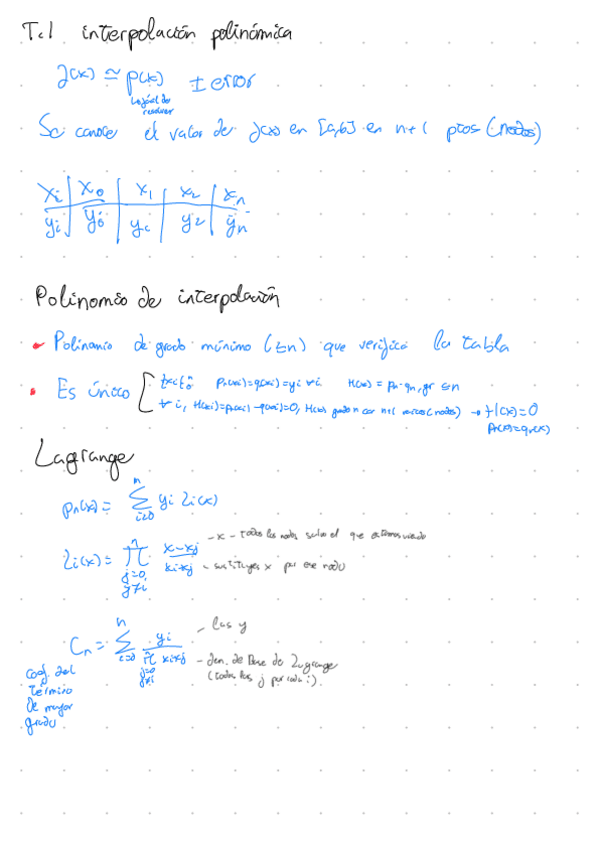 T.1 interpolación polinómica
f(x) ≃ p(x) ± error
Se conoce el valor de f(x) en [a,b] en n+1 ptos (nodos)
xi | x0 | x1 | x2 | xn
yi | y0 | y1 | y2 | yn
Polinomio de interpolación
Polinomio de grado mínimo (≤n) que verifica la tabla
Es único
pn(xi)=qn(xi)=yi ∀i H(x) = pn-qn, gr ≤n
∀ i, H(xi)=pn(xi)-qn(xi)=0, H(x) grado n con n+1 raíces (nodos) → H(x)=0
pn(x)=qn(x)
Lagrange
pn(x) = Σ i=0 n yi li(x)
li(x) = Π j=0, j≠i n x-xj / xi-xj
- x - todos los nodos salvo el que estamos viendo
- sustituyes x por ese nodo
Cn = Σ i=0 n yi / Π j=0 j≠i n xi-xj
- Las y
- den. de Base de Lagrange
(todas las j por cada i).
Coef. del
término
de mayor
grado